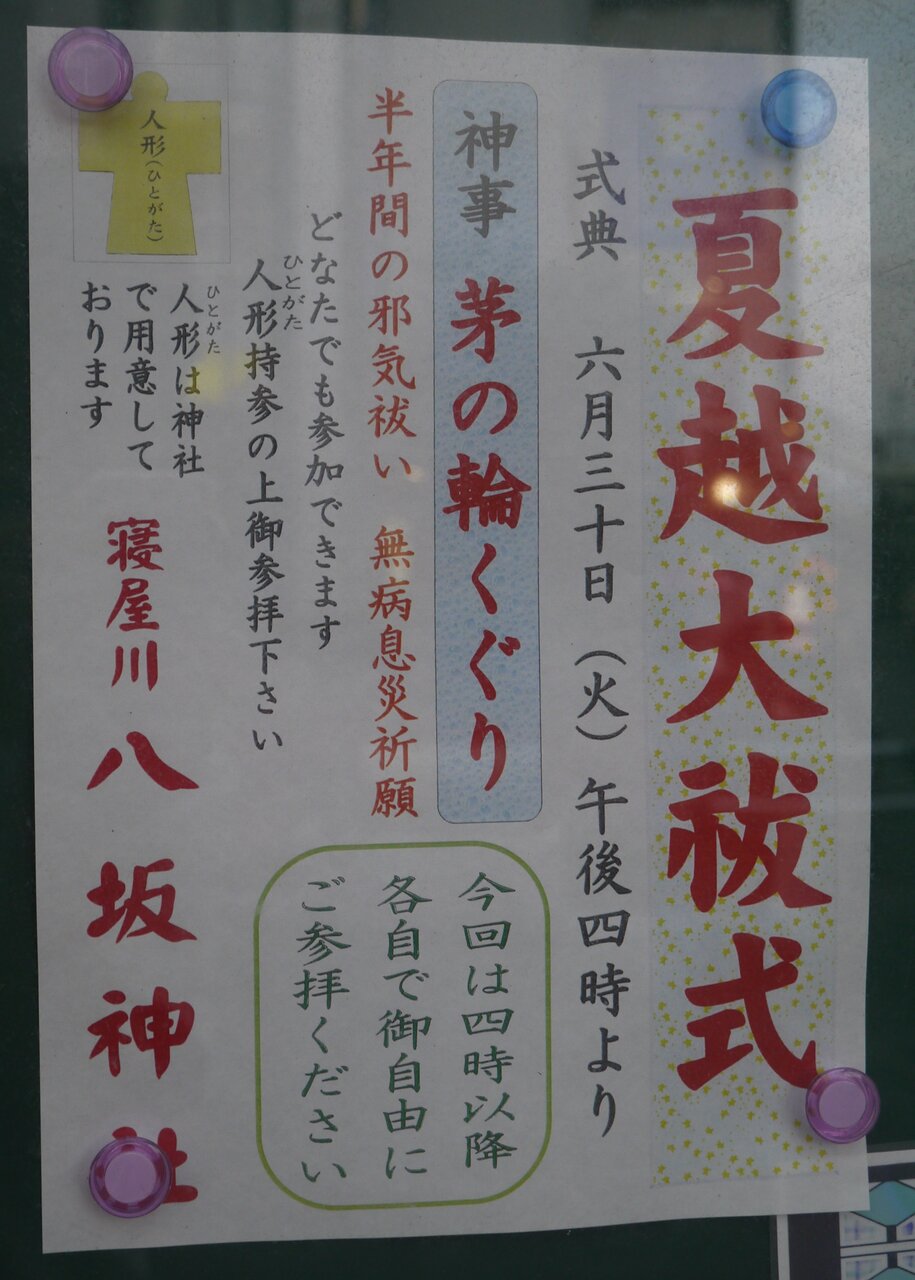 夏越大祓式
式典 六月三十日(火)午後四時より
神事 茅の輪くぐり
半年間の邪気祓い 無病息災祈願
どなたでも参加できます
人形持参の上御参拝下さい
ひとがた
人形(ひとがた)
人形は神社
ひとがた
で用意して
おります
今回は四時以降
各自で御自由に
ご参拝ください
寝屋川 八坂神社